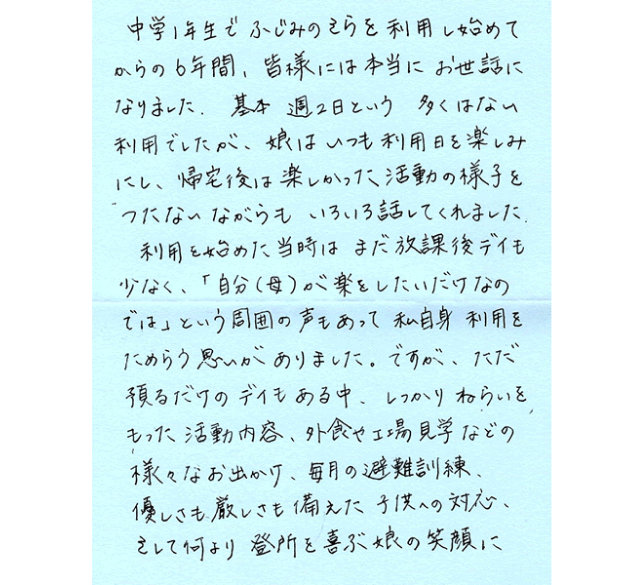 中学1年生でふじみのそらを利用し始めて
からの6年間、皆様には本当にお世話に
なりました。基本週2日という多くはない
利用でしたが、娘はいつも利用日を楽しみ
にし、帰宅後は楽しかった活動の様子を
つたないながらもいろいろ話してくれました。
利用を始めた当時はまだ放課後デイも
少なく、「自分(母)が楽をしたいだけなの
では」という周囲の声もあって私自身利用を
ためらう思いがありました。ですが、ただ
預るだけのデイもある中、しっかりねらいを
もった活動内容、外食や工場見学などの
様々なお出かけ、毎月の避難訓練、
優しさも厳しさも備えた子供への対応、
そして何より登所を喜ぶ娘の笑顔に